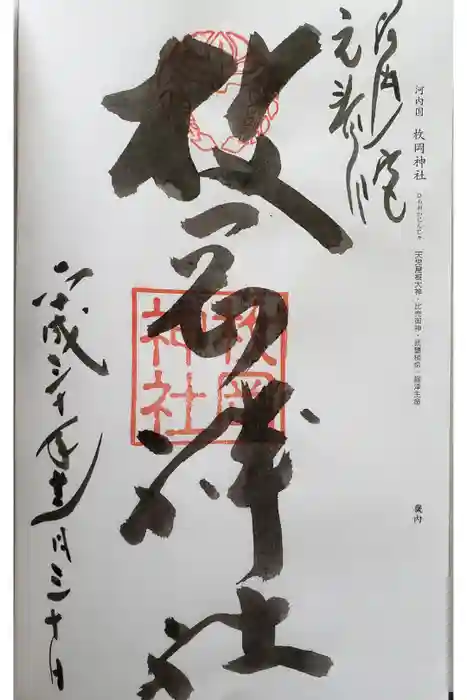 河内国 枚岡神社 ひらおかじんじゃ 天児屋根大神・比売御神・武甕槌命・経津主命
畿内
河内国
元春日
枚岡神社
枚岡
神社
平成三十年壱月三十日